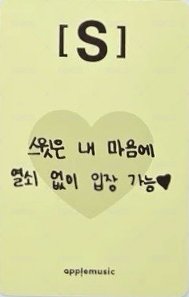 [S]
스윗은 내 마음에
열쇠 없이 입장 가능♥
applemusic